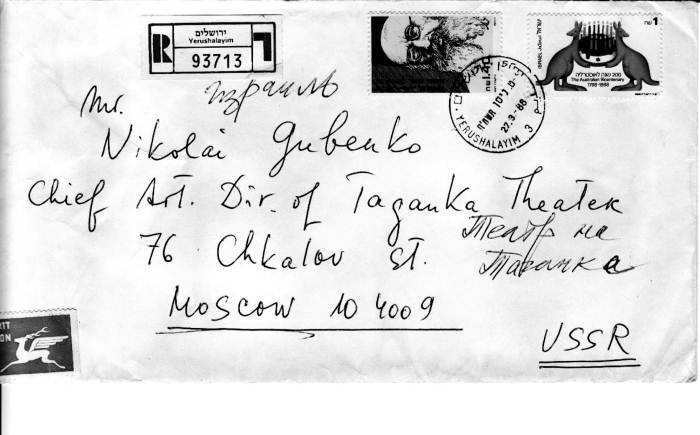 ירושלים
Yerushalayim
R 93713
1
200 שנה לאוסטרליה
The Australian Bicentenary
1788-1988
27.3-88
YERUSHALAYIM 3
израиль
Mr.
Nikolai Gubenko
Chief Art. Dir. of Taganka Theater
Театр на
76 Chkalov st. Таганка
Moscow 104009
USSR